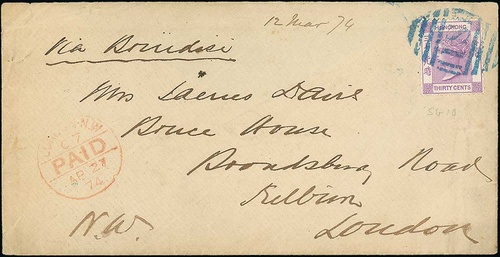 12 Mar 74
Via Brindisi
HONG KONG
THIRTY CENTS
SG 16
Mrs Davis
Bruce House
Brondsbury Road
Kilburn
London
N.W.
PAID
AP 27
74